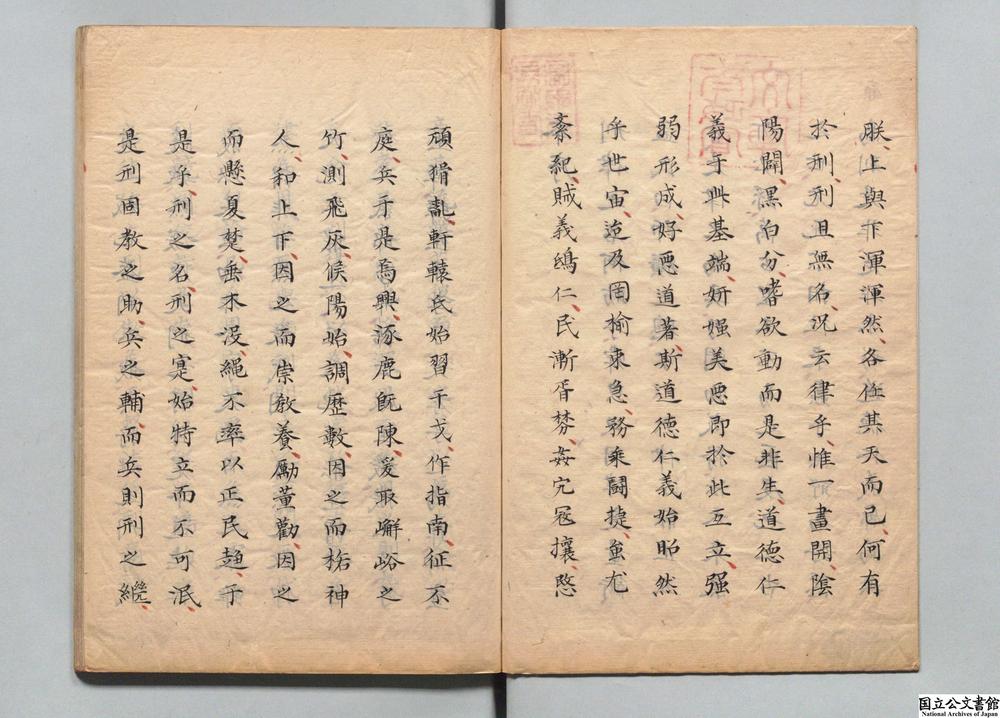 朕、上與下渾渾然、各任其天而已、何有
於刑、刑且無名、况云律乎、惟一畫開、陰
陽闢、黑白分、嗜欲動而是非生、道德仁
義于此基端、妍媸美惡即於此互立、强
弱形成、好惡道著、斯道德仁義始昭然
乎世宙、迨及罔揄東急、務乘鬪捷、蚩尤
紊紀、賊義鴟仁、民漸胥棼、姦宄寇攘、愍
頑猾亂、軒轅氏始習干戈、作指南、征不
庭、兵于是焉興、涿鹿旣陳、爰取嶰峪之
竹、測飛灰、候陽始、調歷數、因之而格神
人、和上下、因之而崇教養、勵董勸、因之
而懸夏楚、垂木沒、繩不率以正民趋、于
是乎、刑之名、刑之寔、始特立而不可泯、
是刑固教之助、兵之輔、而兵則刑之繼、
国立公文書館
National Archives of Japan